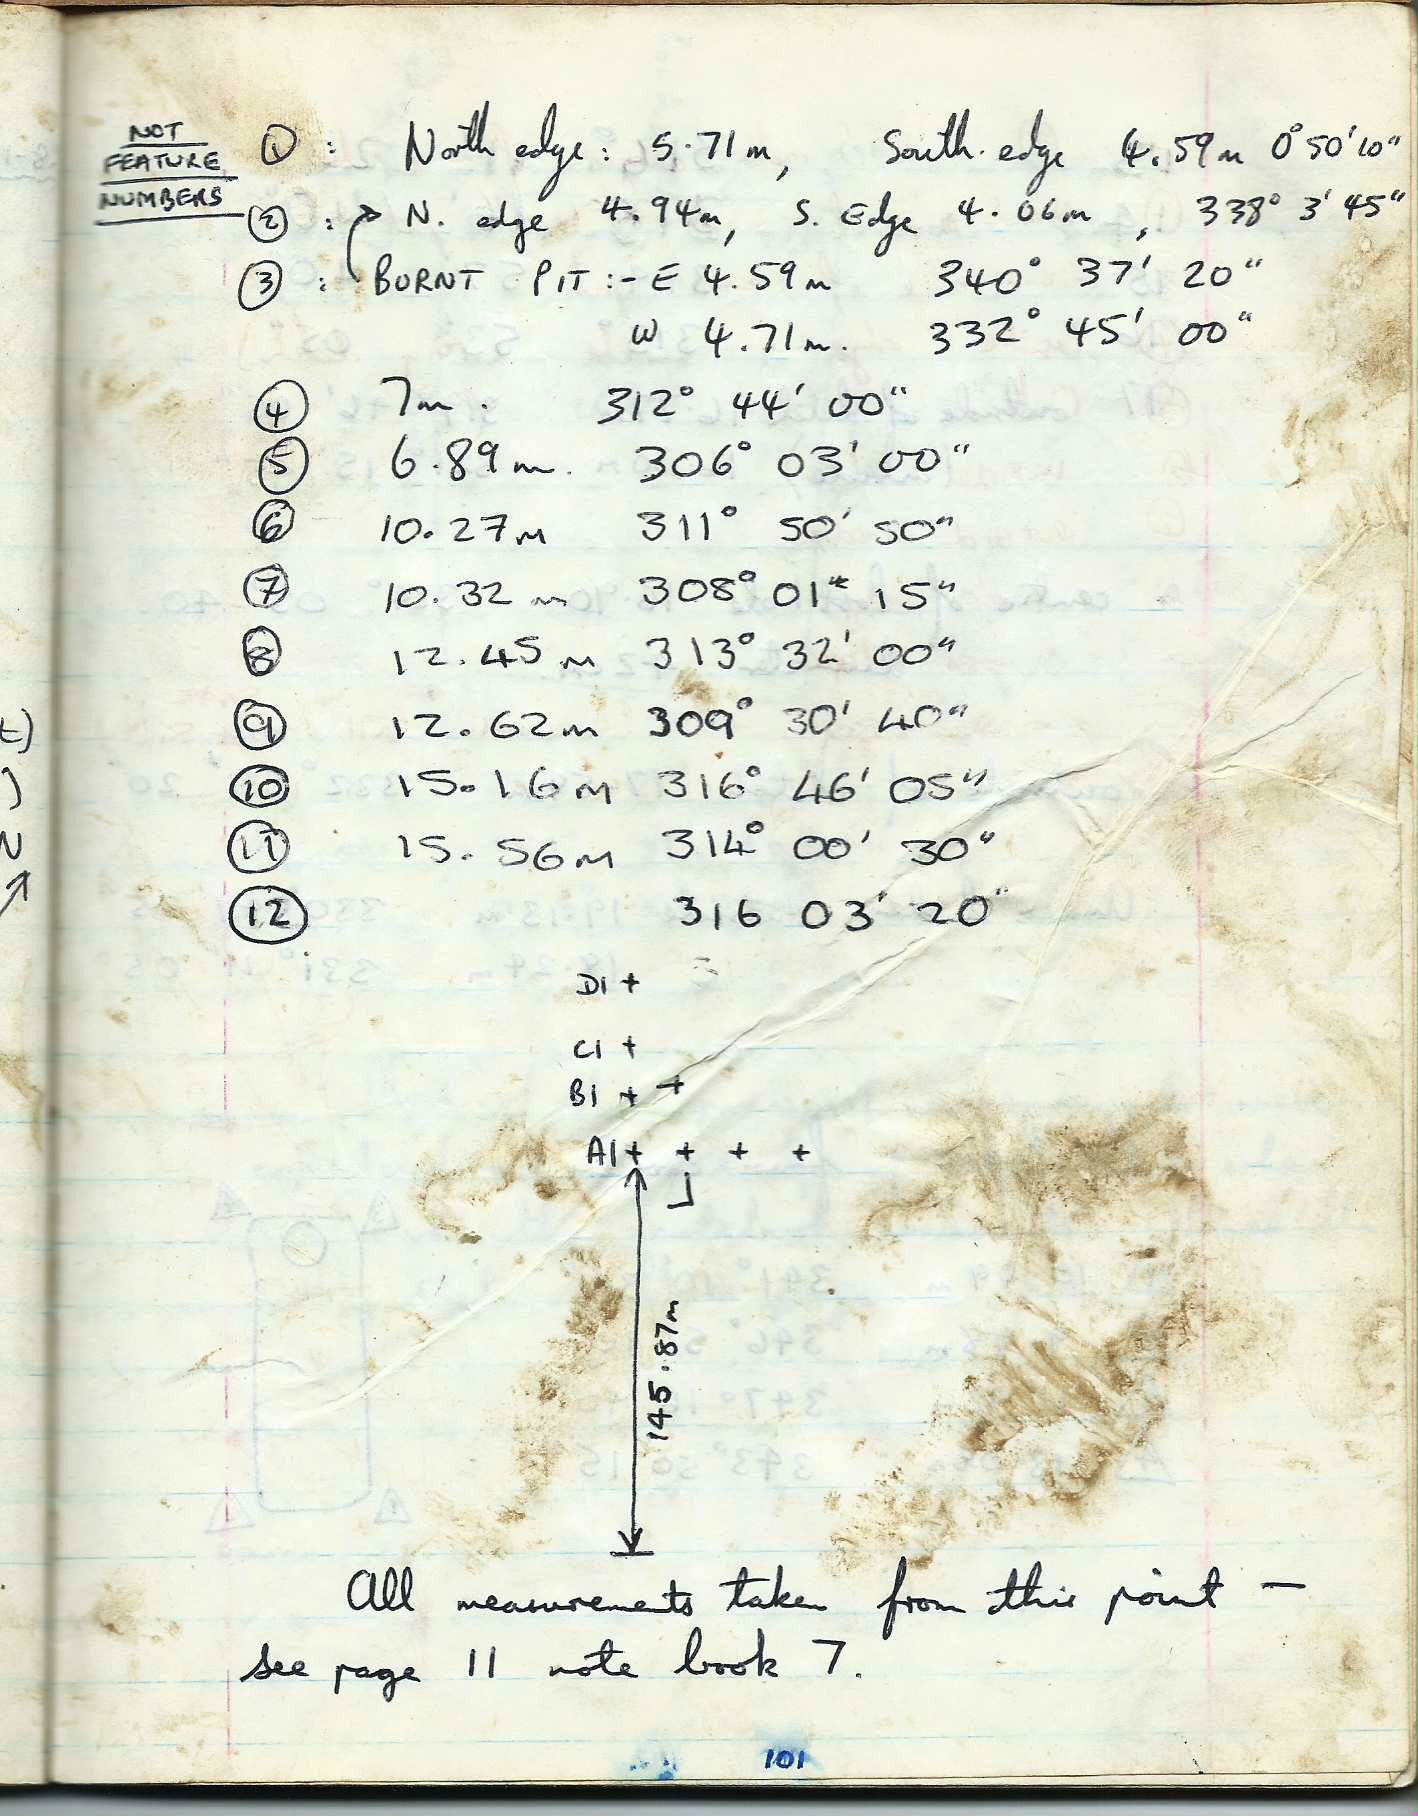 NOT
FEATURE
NUMBERS
① : North edge: 5.71m, South. edge 4.59m 0° 50' 10"
② : N. edge 4.94m, S. Edge 4.06m, 338° 3' 45"
③ : BURNT PIT :- E 4.59m 340° 37' 20"
W 4.71m. 332° 45' 00"
④ 7m. 312° 44' 00"
⑤ 6.89m. 306° 03' 00"
⑥ 10.27m 311° 50' 50"
⑦ 10.32m 308° 01" 15"
⑧ 12.45m 313° 32' 00"
⑨ 12.62m 309° 30' 40"
⑩ 15.16m 316° 46' 05"
⑪ 15.56m 314° 00' 30"
⑫ 316 03' 20"
D1 +
C1 +
B1 + +
A1 + + + +
145.87m
All measurements taken from this point —
see page 11 note book 7.
101